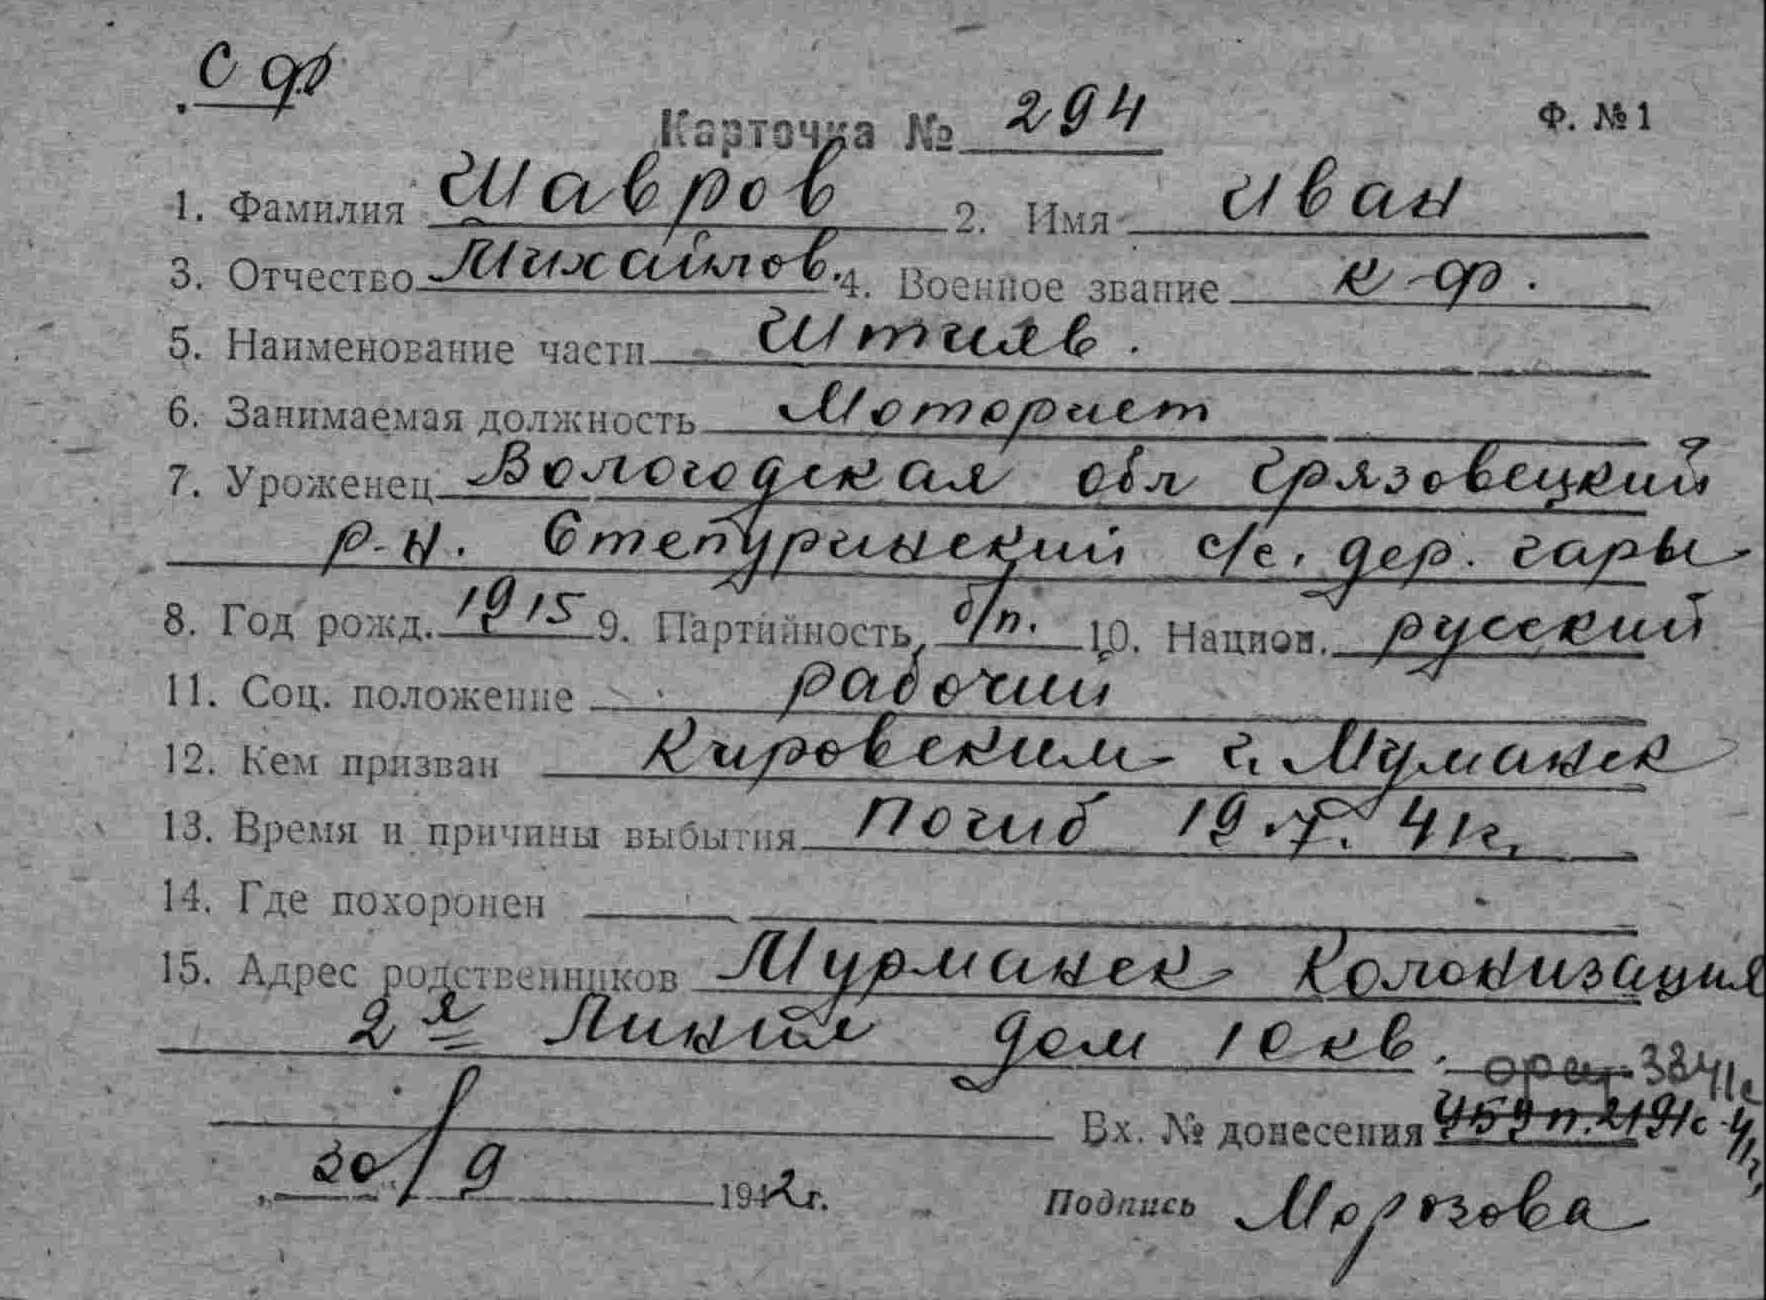 С Ф
Карточка № 294 Ф. № 1
1. Фамилия Шавров 2. Имя Иван
3. Отчество Михайлов. 4. Военное звание к-ф.
5. Наименование части Штиль.
6. Занимаемая должность Моторист
7. Уроженец Вологодская обл Грязовецкий
р-н. Степуринский с/с. дер. Гары
8. Год рожд. 1915 9. Партийность, б/п. 10. Национ. русский
11. Соц. положение рабочий
12. Кем призван Кировским г. Муманск
13. Время и причины выбытия Погиб 19 41г.
14. Где похоронен
15. Адрес родственников Мурманск Колонизация
2я Линия дом 10кв.
Вх. № донесения
30/9 1942 г. Подпись Морозова